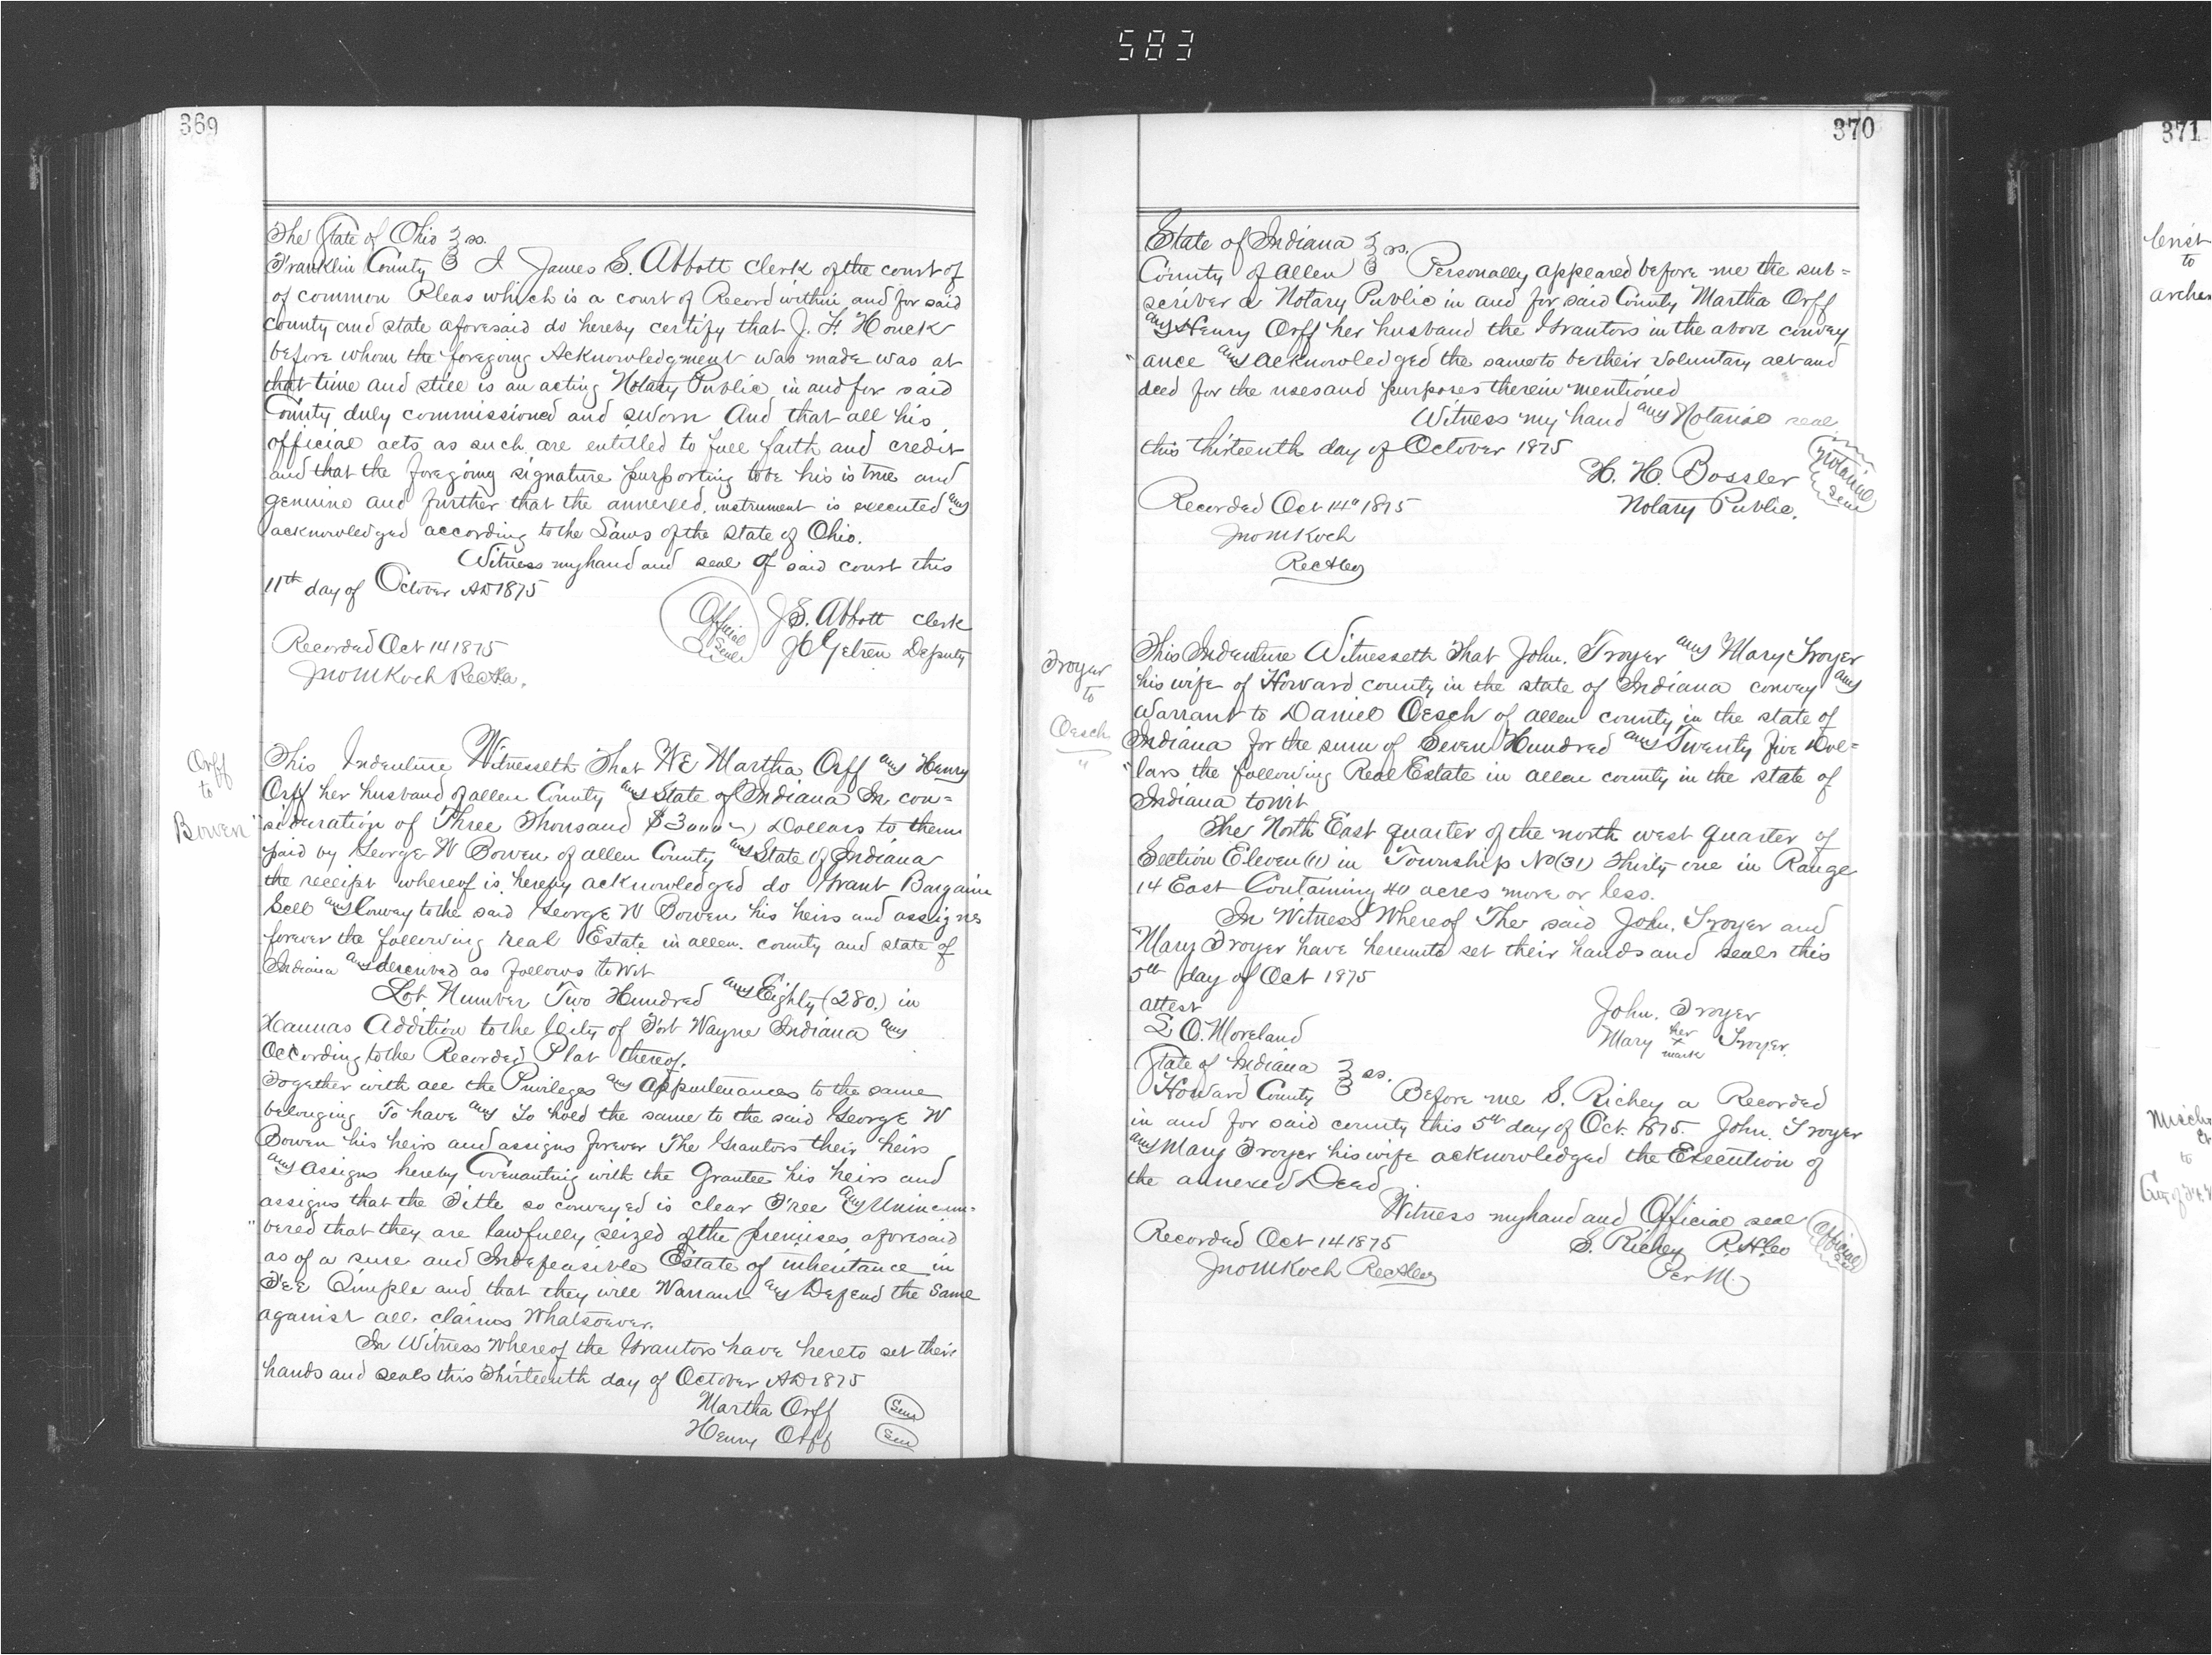 583
369
The State of Ohio } ss.
Franklin County } I James S. Abbott clerk of the court of
of common Pleas which is a court of Record within and for said
county and state aforesaid do hereby certify that J. F. Houck
before whom the foregoing Acknowledgment was made was at
that time and still is an acting Notary Public in and for said
County duly commissioned and sworn And that all his
official acts as such are entitled to full faith and credit
and that the foregoing signature purporting to be his is true and
genuine and further that the annexed instrument is executed and
acknowledged according to the Laws of the State of Ohio.
Witness my hand and seal of said court this
11th day of October AD 1875
Official Seal
J. S. Abbott clerk
Deputy
Recorded Oct 14 1875
Jno M Koch
Orff
to
Bowen
This Indenture Witnesseth That WE Martha Orff and Henry
Orff her husband of allen County and State of Indiana In con=
"sideration of Three Thousand Dollars to them
paid by George W Bowen of allen County and State of Indiana
the receipt whereof is hereby acknowledged do Grant Bargain
Sell and Convey to the said George W Bowen his heirs and assignes
forever the following real Estate in allen county and state of
Indiana and described as follows to wit
Lot Number Two Hundred and Eighty (280.) in
Hannas Addition to the City of Fort Wayne Indiana and
according to the Recorded Plat thereof.
Together with all the Privileges and Appurtenances to the same
belonging To have and To hold the same to the said George W
Bowen his heirs and assigns forever The Grantors their heirs
and assigns hereby Covenanting with the Grantee his heirs and
assigns that the Title so conveyed is clear Free and Unincum-
"bered that they are lawfully seized of the premises aforesaid
as of a sure and Indefeasible Estate of inheritance in
FEE Simple and that they will Warrant and Defend the Same
against all claims Whatsoever.
In Witness Whereof the Grantors have hereto set their
hands and seals this Thirteenth day of October AD 1875
Martha Orff Seal
Henry Orff Seal
370
State of Indiana } ss.
County of Allen } Personally appeared before me the sub=
scriber a Notary Public in and for said County Martha Orff
and Henry Orff her husband the Grantors in the above convey
"ance and acknowledged the same to be their voluntary act and
deed for the uses and purposes therein mentioned
Witness my hand and Notarial seal
this thirteenth day of October 1875
H. H. Bossler
Notary Public.
Notarial Seal
Recorded Oct 14" 1875
Jno M Koch
Troyer
to
Oesch
"
This Indenture Witnesseth That John. Troyer and Mary Troyer
his wife of Howard county in the state of Indiana convey and
Warrant to Daniel Oesch of allen county in the state of
Indiana for the sum of Seven Hundred and Twenty five Dol=
"lars the following Real Estate in allen county in the state of
Indiana to wit
The North East quarter of the north west quarter of
Section Eleven (11) in Township No (31) Thirty one in Range
14 East Containing 40 acres more or less.
In Witness Whereof The said John. Troyer and
Mary Troyer have hereunto set their hands and seals this
5th day of Oct 1875
attest
L O. Moreland
John. Troyer
Mary her x mark Troyer.
State of Indiana } ss.
Howard County } Before me S. Richey a Recorded
in and for said county this 5th day of Oct. 1875. John. Troyer
and Mary Troyer his wife acknowledged the Execution of
the annexed Deed
Witness my hand and Official seal
S. Richey
Per M.
Official Seal
Recorded Oct 14 1875
Jno M Koch
371
to
to